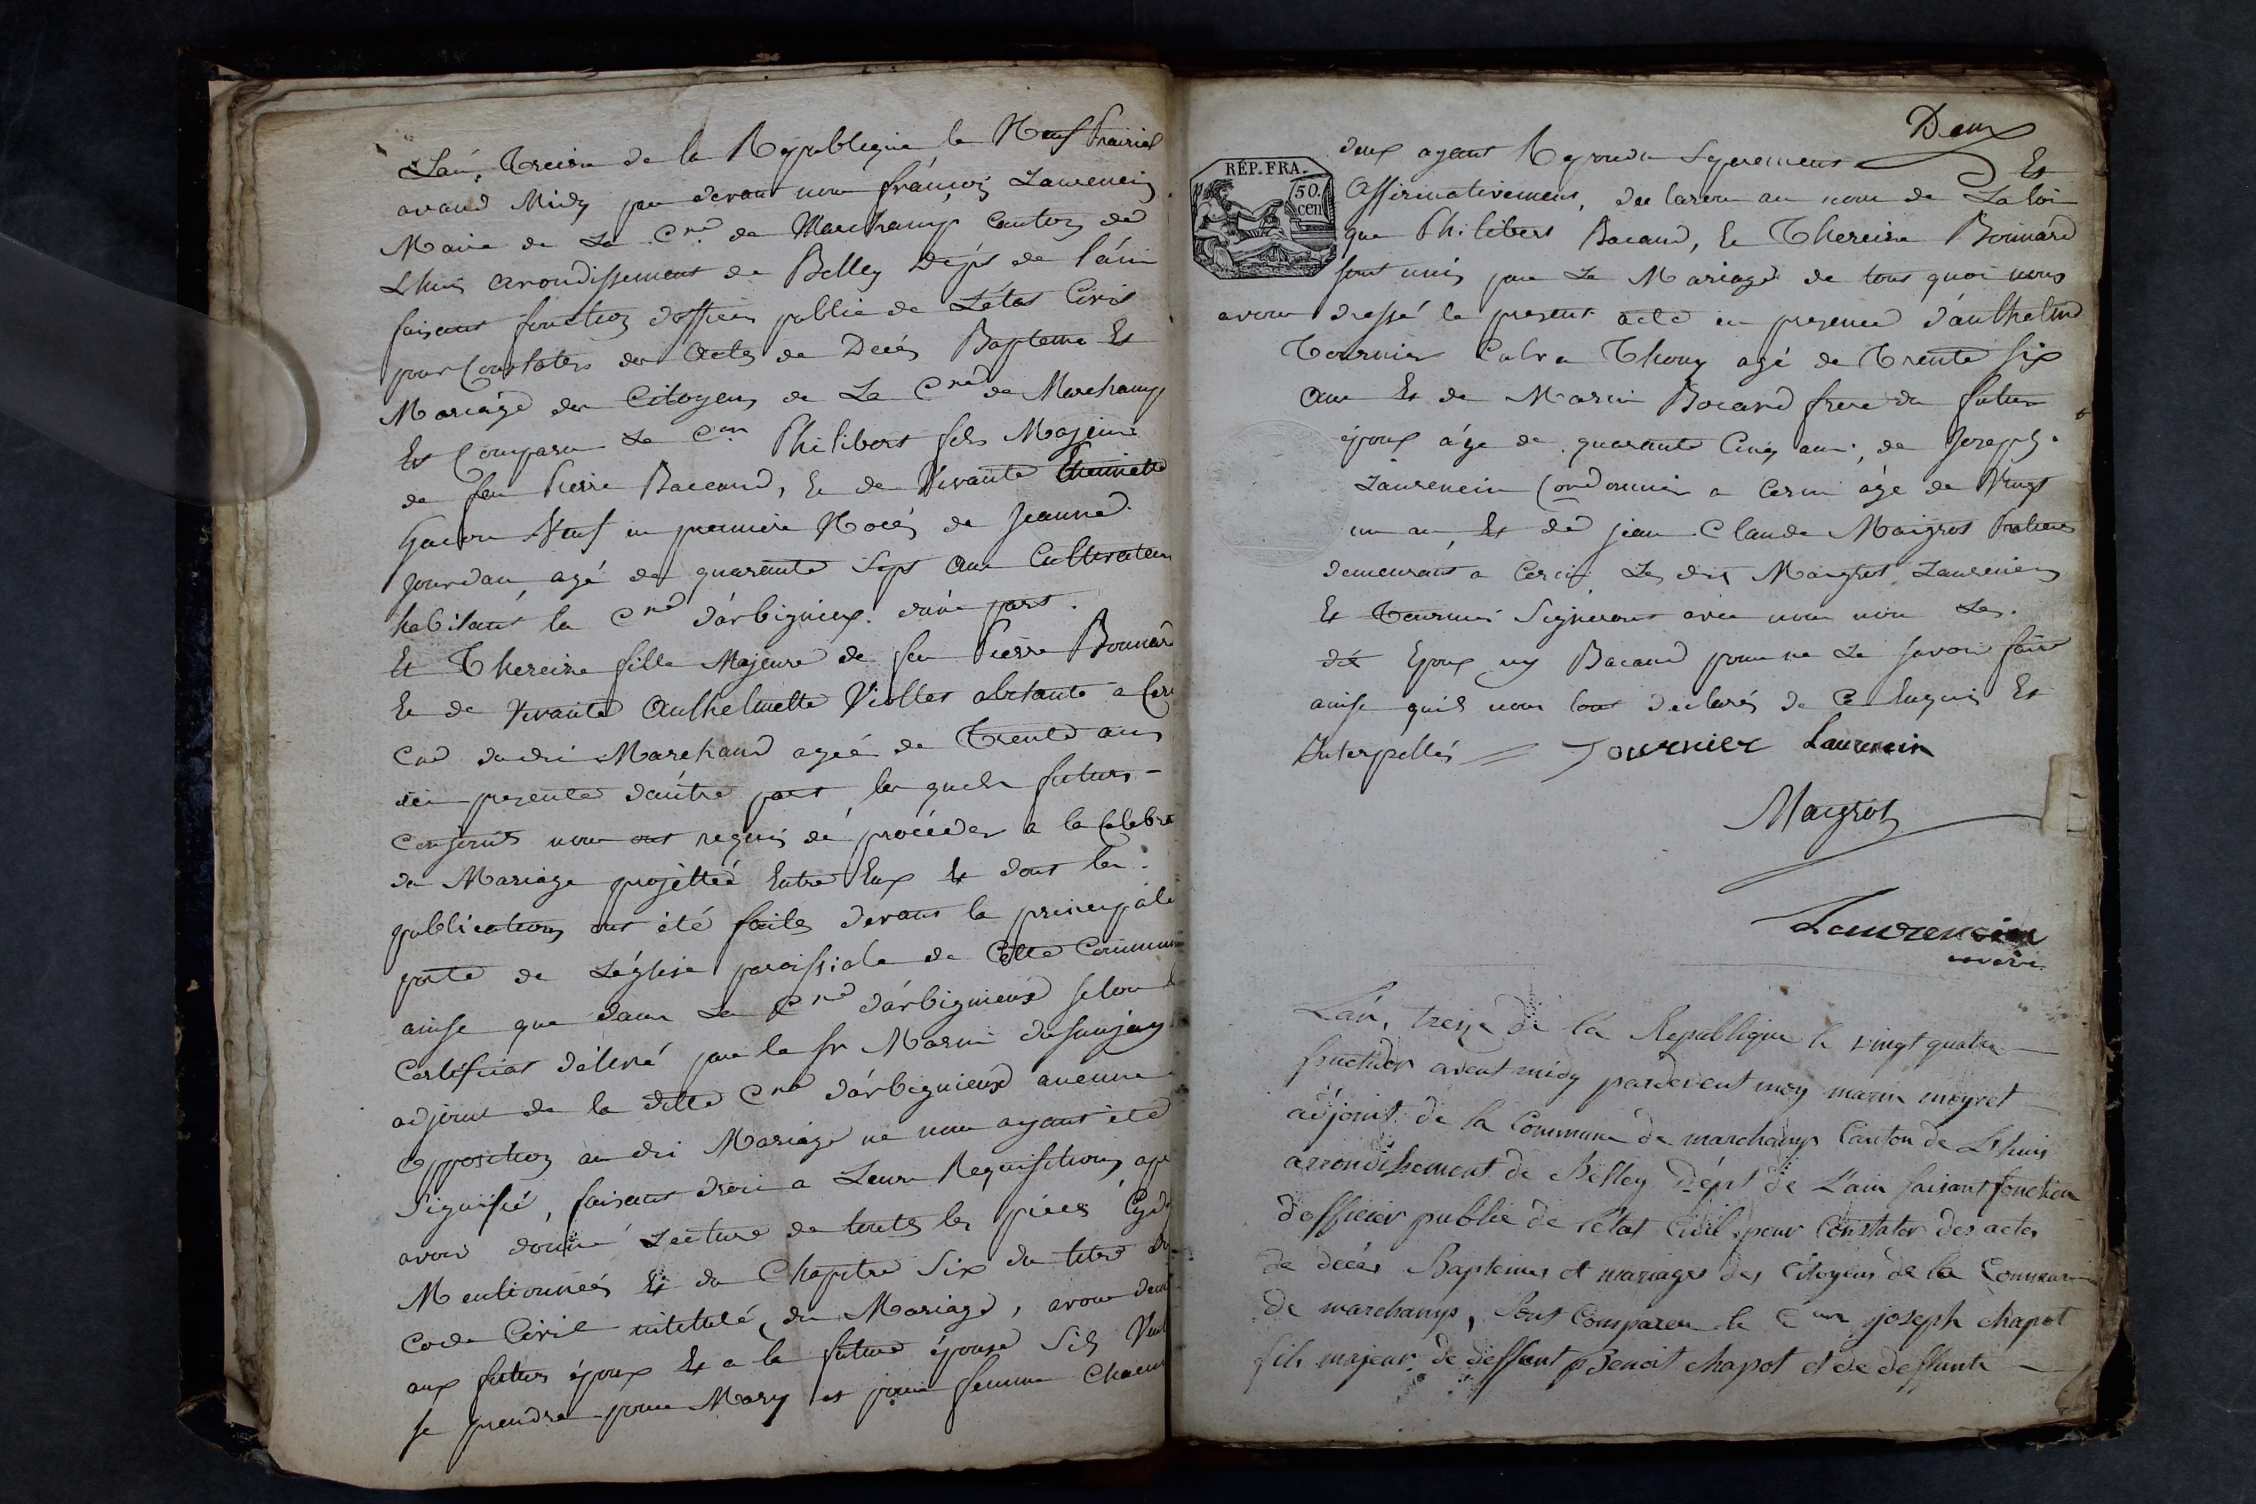 L'an, Treize de la Republique le Neuf Prairial
avand Midy par devant nous françois Laurencin
Maire de La C.ne de Marchamp Canton de
Lhuis arondissement de Belley Dépt de l'áin
faisant fonction d'officier public de L'état Civil
pour Constater des Actes de Decés Bapteme Et
Mariage des Citoyens de La Cne de Marchamp
Et Comparu Le Cen Philibert fils Majeur
de feu Pierre Baccand, Et de Vivante
Veuf en premiere Nocés de Jeanne
Jourdan, agé de quarante Sept Ans Cultivateur
habitant la Cne d'árbignieux d'une part.
Et Thereize fille Majeure de feu Pierre Bonnard
Et de Vivante Anthelmette Viollet abitante a
dudit Marchand agée de Trente ans
ici presente d'autre part, les quels futurs
Conjoints nous ont requis de procéder a la Celebra
du Mariage projetteé Entre Eux Et dont les
publications ont été faites devant la principale
porte de L'église paroissiale de Cette Commune
ainse que dans La Cne d'árbignieux selon
Certificat délivré par le sr Marin
adjoint de la ditte Cne d'árbignieux aucune
opposition au dit Mariage ne nous ayant été
Signifié, faisant droit a Leurs Requisitions, apr
avoir donné Lecture de toutes les piéces
Mentionneés Et du Chapitre Six du titre du
Code Civil intitulé, du Mariage, avons dem
aux futur époux Et a la future épouse S'ils Veul
se prendre pour Mary et pour femme Chacun
Deux
RÉP. FRA.
50.
cen
deux ayant Repondu Séparement Et
Affirmativement, declarons au nom de La loi
que Philibert Bacand, Et Thereize Bonnard
sont unis par Le Mariage de tout quoi nous
avons dressé le present acte en presence d'anthelme
Tournier Thony agé de Trente six
Ans Et de Marin Bocand frere du futur
époux áge de quarante Cinq ans, de Joseph
Laurencin Cordonnier a Cerin áge de Vingt
un an, Et de jean Claude Maigrot
demeurant a Cerin Les dits Maigrot, Laurencin
Et Tournier Signeront avec nous non Les
dit Epoux ny Bacand pour ne Le savoir faire
ainse quils nous l'ont declarés de Ce Enquis Et
Interpellés = Tournier Laurencin
Maigrot
Laurencin
maire
L'án, treize de la Republique le vingt quatre
fructidor avent midy pardevent moy marin moyret
adjoint de la Commune de marchamp Canton de Lhuis
arrondissement de Belley Dépt de L'ain faisant fonction
d'officier public de l'état Civil pour Constater des actes
de décés Baptemes et mariages des Citoyens de la Commune
de marchamp, Sont Compareu le Cen joseph chapot
fils majeur de deffunt Benoit chapot et de deffunte